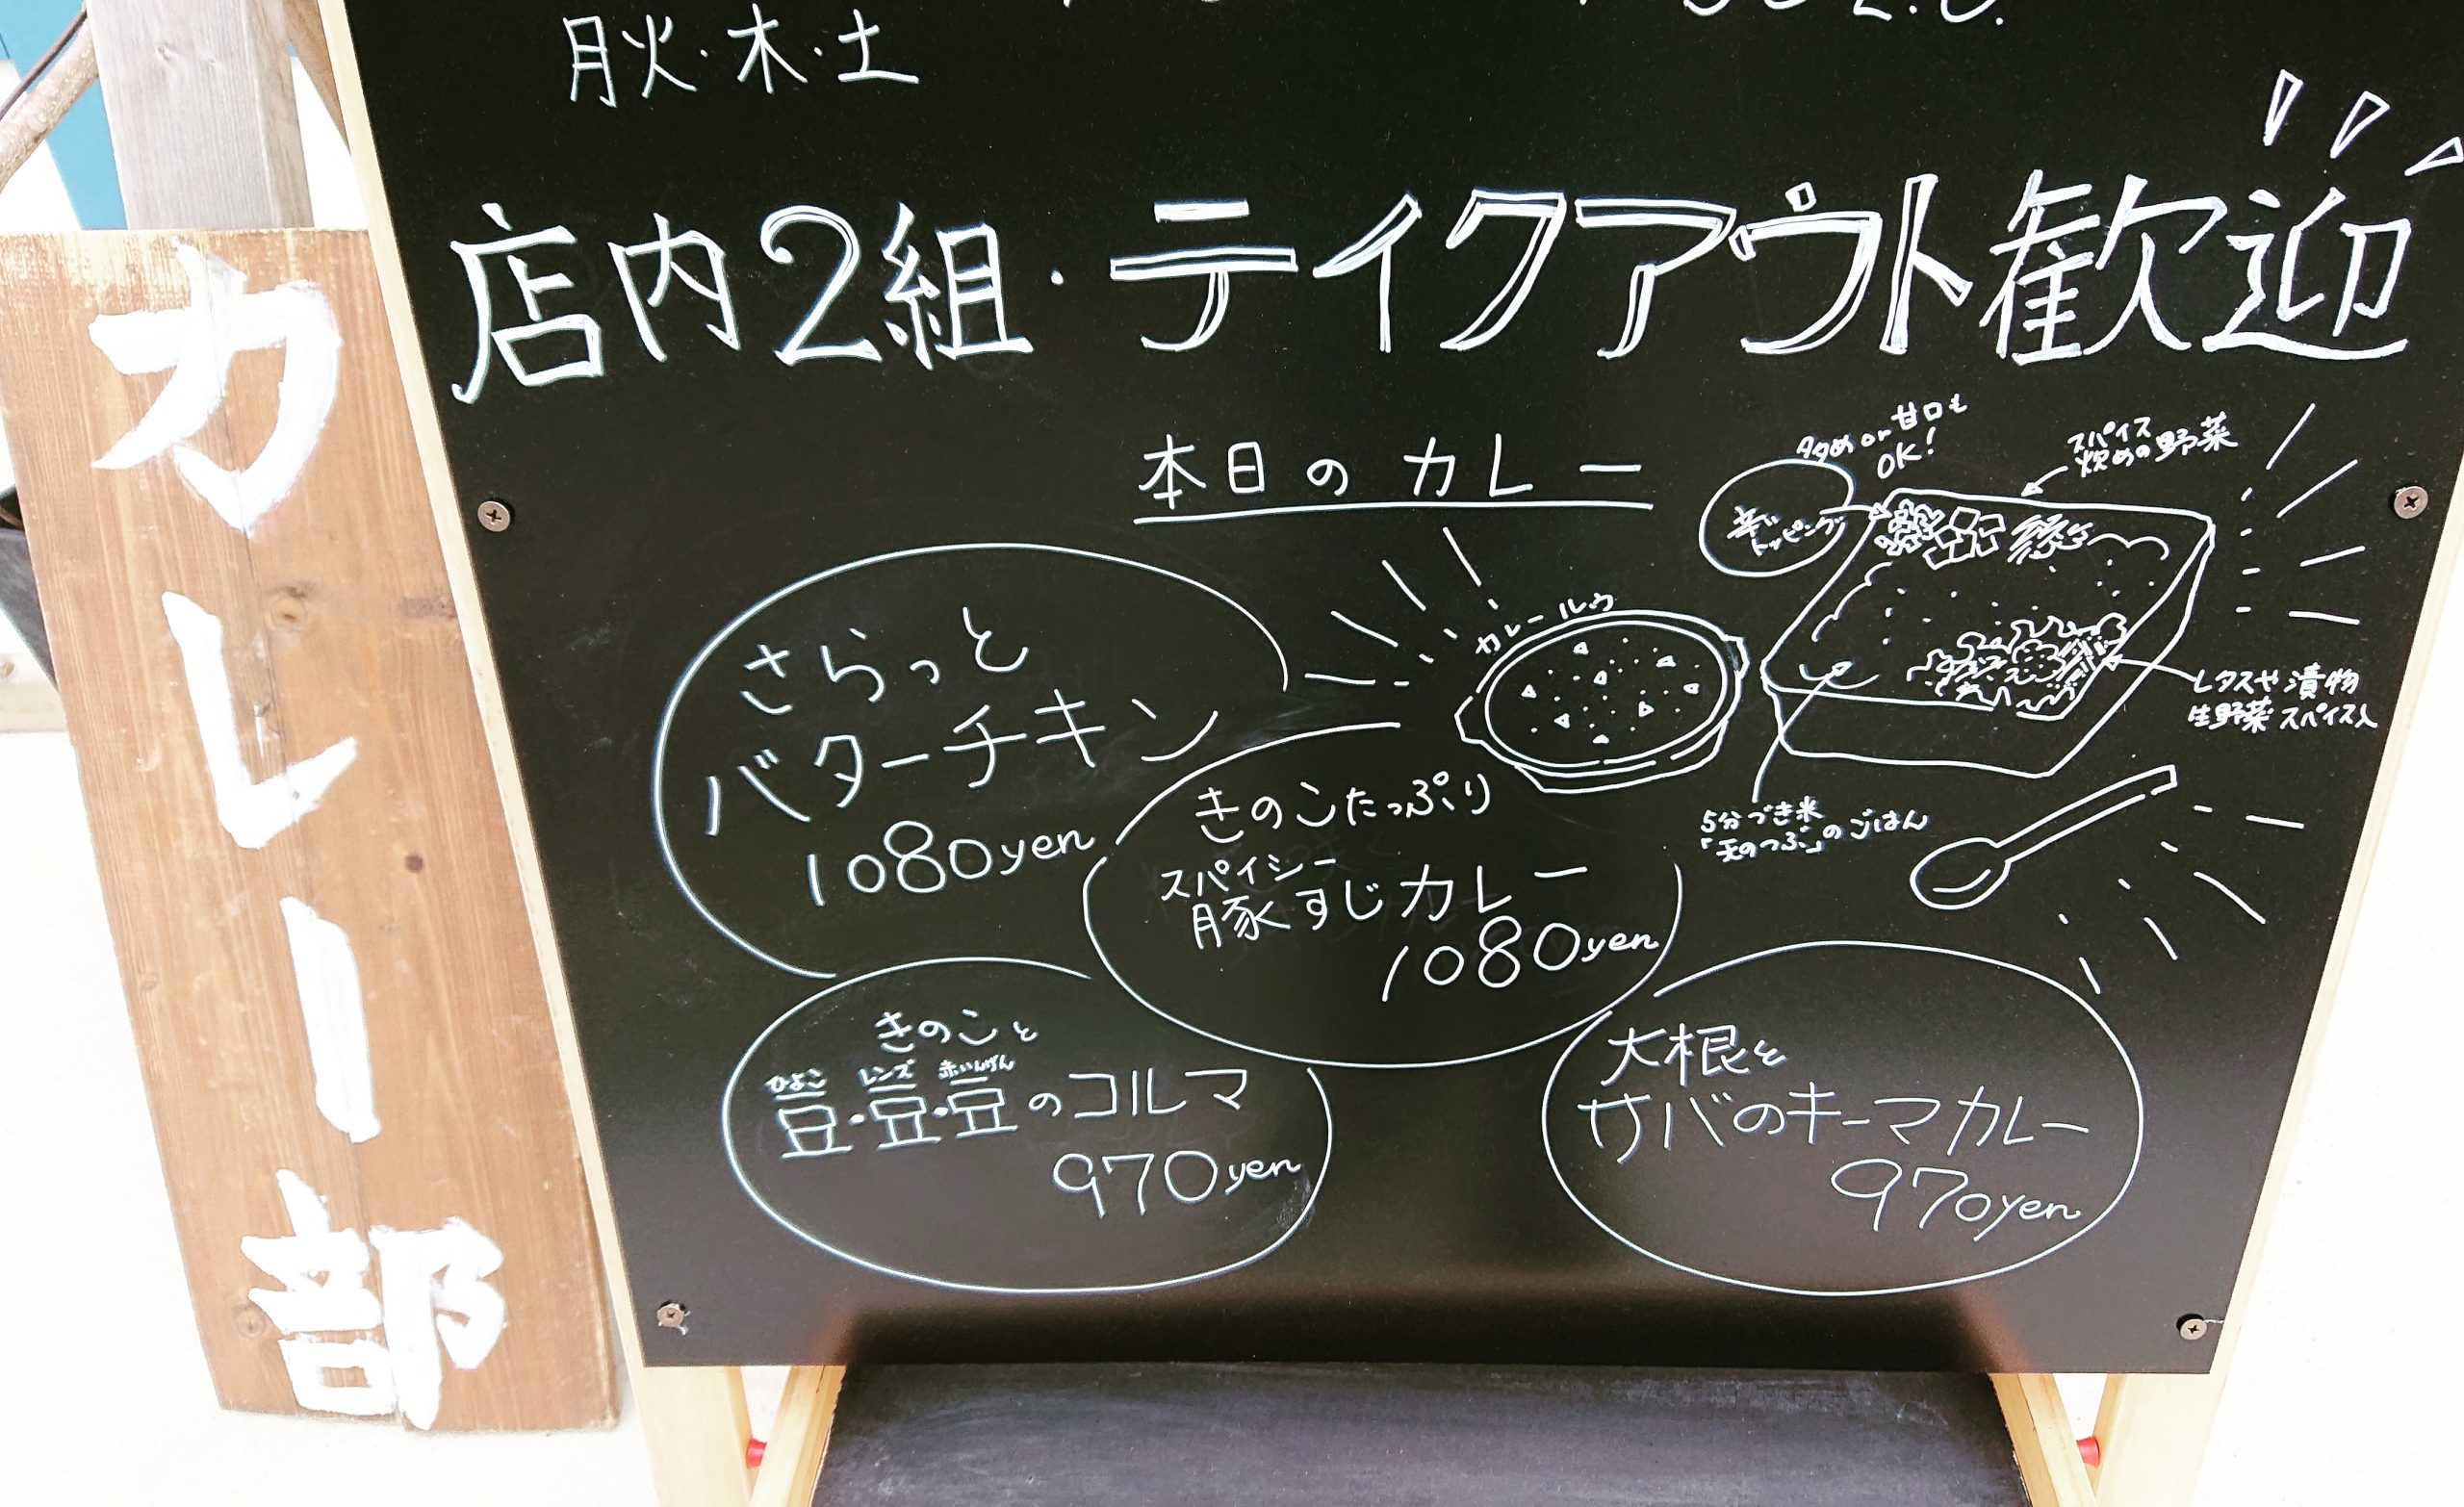 月火・木・土
店内2組・テイクアウト歓迎
本日のカレー
さらっと
バターチキン
1080yen
きのこたっぷり
スパイシー
豚すじカレー
1080yen
きのこと
ひよこ レンズ 赤いんげん
豆・豆・豆のコルマ
970yen
大根と
サバのキーマカレー
970yen
カレールゥ
多め or 甘口も
OK!
辛い
トッピング
スパイス
炒めの野菜
レタスや漬物
生野菜スパイス入
5分づき米
「天のつぶ」のごはん
カレー部